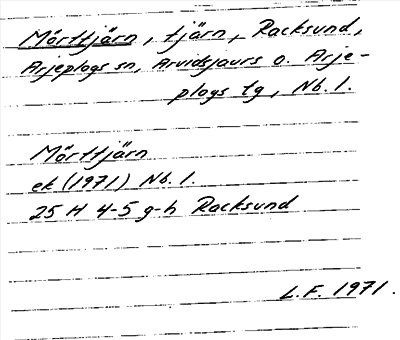 Mörttjärn, tjärn, Racksund,
Arjeplogs sn, Arvidsjaurs o. Arje-
plogs tg, Nb. l.
Mörttjärn
ek (1971) Nb. l.
25 H 4-5 g-h Racksund
L.F. 1971.